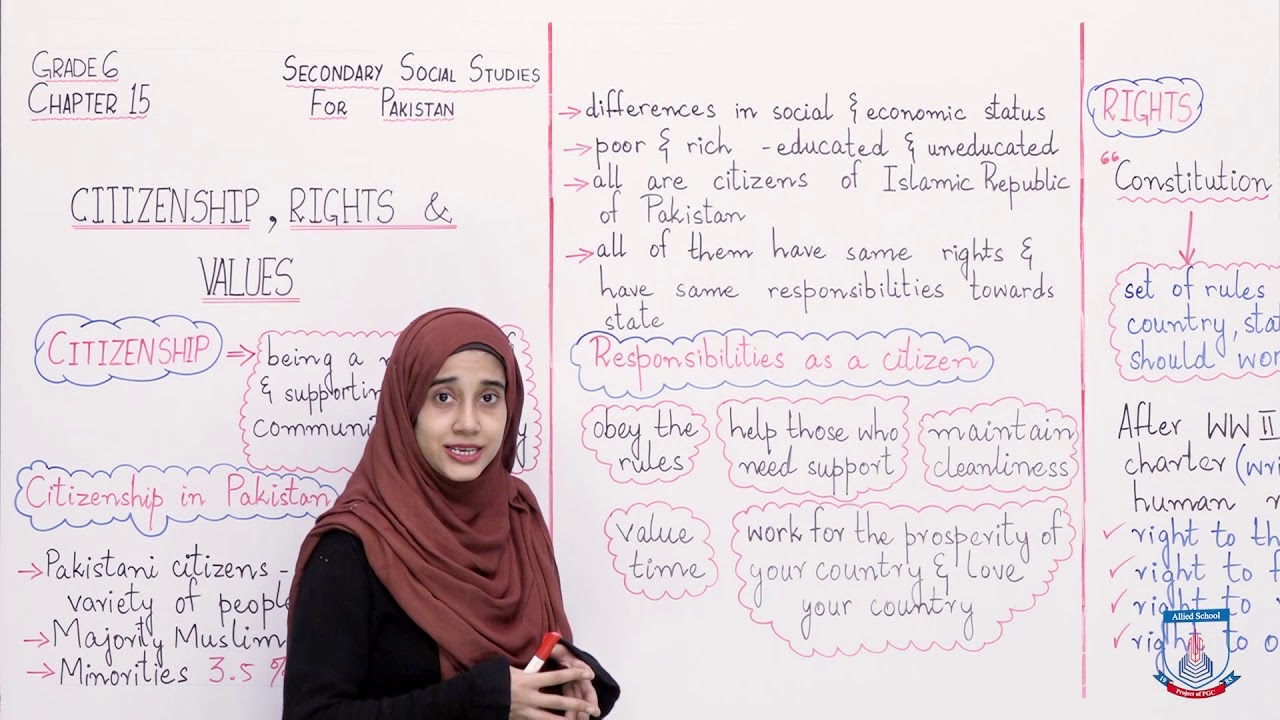 GRADE 6
CHAPTER 15
SECONDARY SOCIAL STUDIES
FOR PAKISTAN
CITIZENSHIP, RIGHTS &
VALUES
CITIZENSHIP ⇒ being a
& supporting
Citizenship in Pakistan
→ Pakistani citizens -
variety of people
→ Majority Muslim
→ Minorities 3.5 %
→ differences in social & economic status
→ poor & rich - educated & uneducated
→ all are citizens of Islamic Republic
of Pakistan
→ all of them have same rights &
have same responsibilities towards
state
Responsibilities as a citizen
obey the
rules
help those who
need support
maintain
cleanliness
value
time
work for the prosperity of
your country & love
your country
RIGHTS
“Constitution
set of rules
country,
should
After WW II
charter
human
✓ right to
✓ right to
✓ right to
✓ right to
Allied School
19 85
Project of PGC